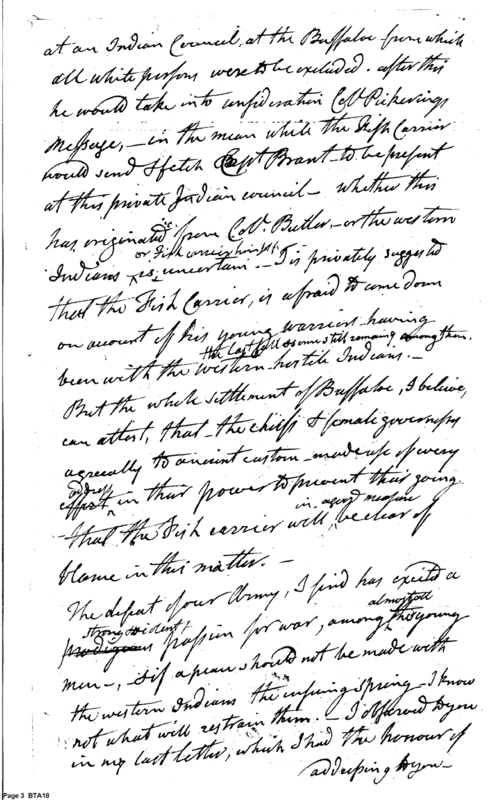 at an Indian Council, at the Buffaloe from which
all white persons were to be excluded. after this
he would take into consideration Coll. Pickerings
Message, – in the mean while the Fish Carrier
would send & fetch Capt Brant – to be present
at this private Indian council – whether this
has originated from Coll. Butler, – or the western
or Fish carrier himself
Indians is uncertain – T is privately suggested
that the Fish Carrier, is afraid to come down
on account of his young warriors having
the last fall & some still remaing among them.
been with the western hostile Indians. –
But the whole settlement of Buffaloe, I believe,
can attest, that the chiefs & female governesses
agreeally to ancient custom made use of every
address
effort in their power to prevent their going
in a good measure
that the Fish carrier will, be clear of
blame in this matter. –
The defeat of our Army, I find has excited a
strong & violent almost all
prodigious passion for war, among the young
men –, & if a peace should not be made with
the western Indians the ensuing Spring – I know
not what will restrain them. – I observed to you
in my last letter, which I had the honour of
addressing to you –
Page 3 BTA18